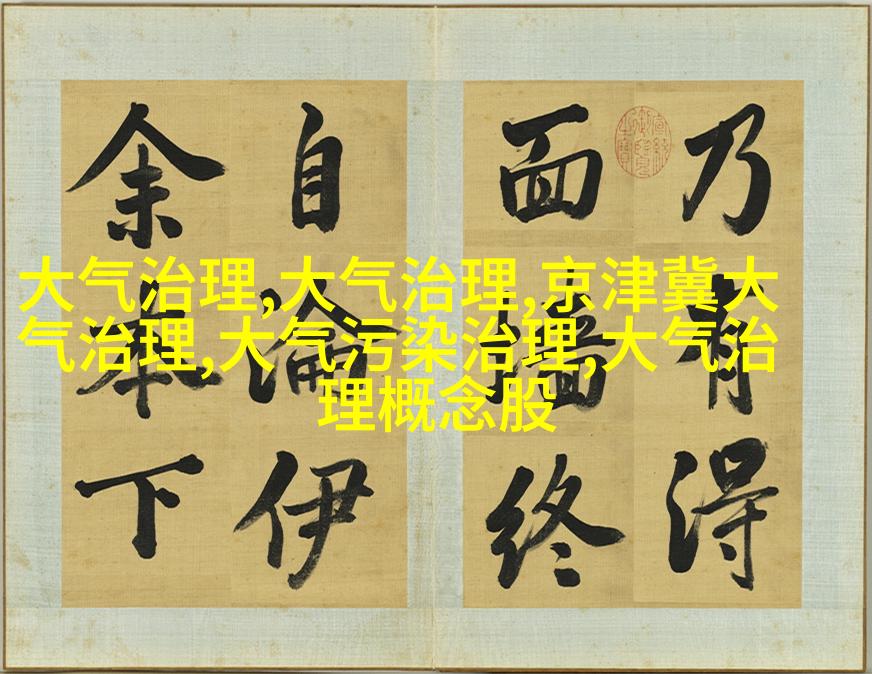 大气治理,大气治理,京津冀大
气治理,大气污染治理,大气治
理概念股
乃有得
面墻終
自淪伊
余本下